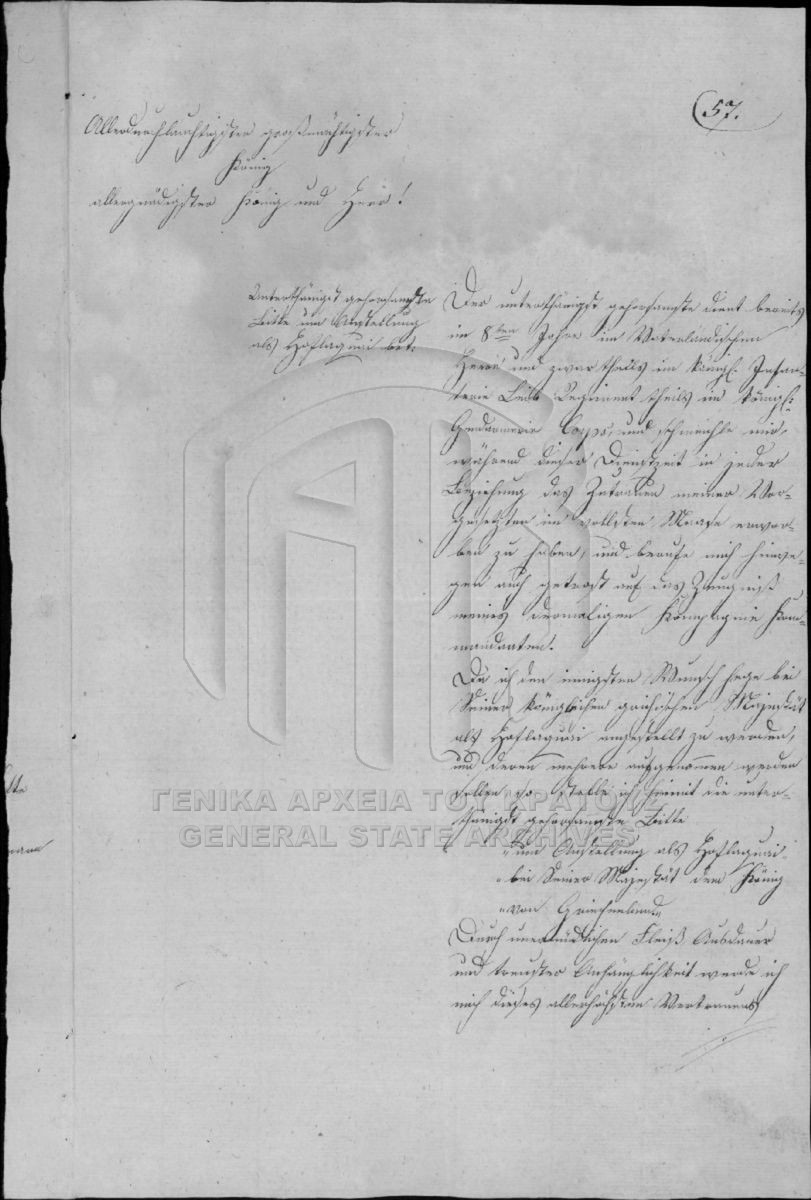 57.
Allerdurchlauchtigster großmächtigster
König
allergnädigster König und Herr!
Unterthänigst gehorsamste
Bitte um Anstellung
als Hoflaquai betr.
Der unterthänigst gehorsamste dient bereits
im 8ten Jahre im Vaterländischen
Heere und zwar theils im königl. Infan-
terie Leib Regiment theils im königl.
Gendarmerie Corps, und schmeichle mir,
während dieser Dienstzeit in jeder
Beziehung das Zutrauen meiner Vor-
gesetzten im vollsten Maase erwor-
ben zu haben, und berufe mich hinwe-
gen auch getrost auf das Zeugniß
meines dermaligen Kompagnie Kom-
mandanten.
Da ich den innigsten Wunsch hege bei
Seiner königlichen griechischen Majestät
als Hoflaquai angestellt zu werden,
und deren mehrere aufgenommen werden
sollen, so stelle ich hiemit die unter-
thänigst gehorsamste Bitte
"um Anstellung als Hoflaquai
"bei Seiner Majestät dem König
"von Griechenland."
Durch unermüdlichen Fleiß Ausdauer
und treuster Anhänglichkeit werde ich
mich dieses allerhöchsten Vertrauens
ΓΕΝΙΚΑ ΑΡΧΕΙΑ ΤΟΥ ΚΡΑΤΟΥΣ
GENERAL STATE ARCHIVES